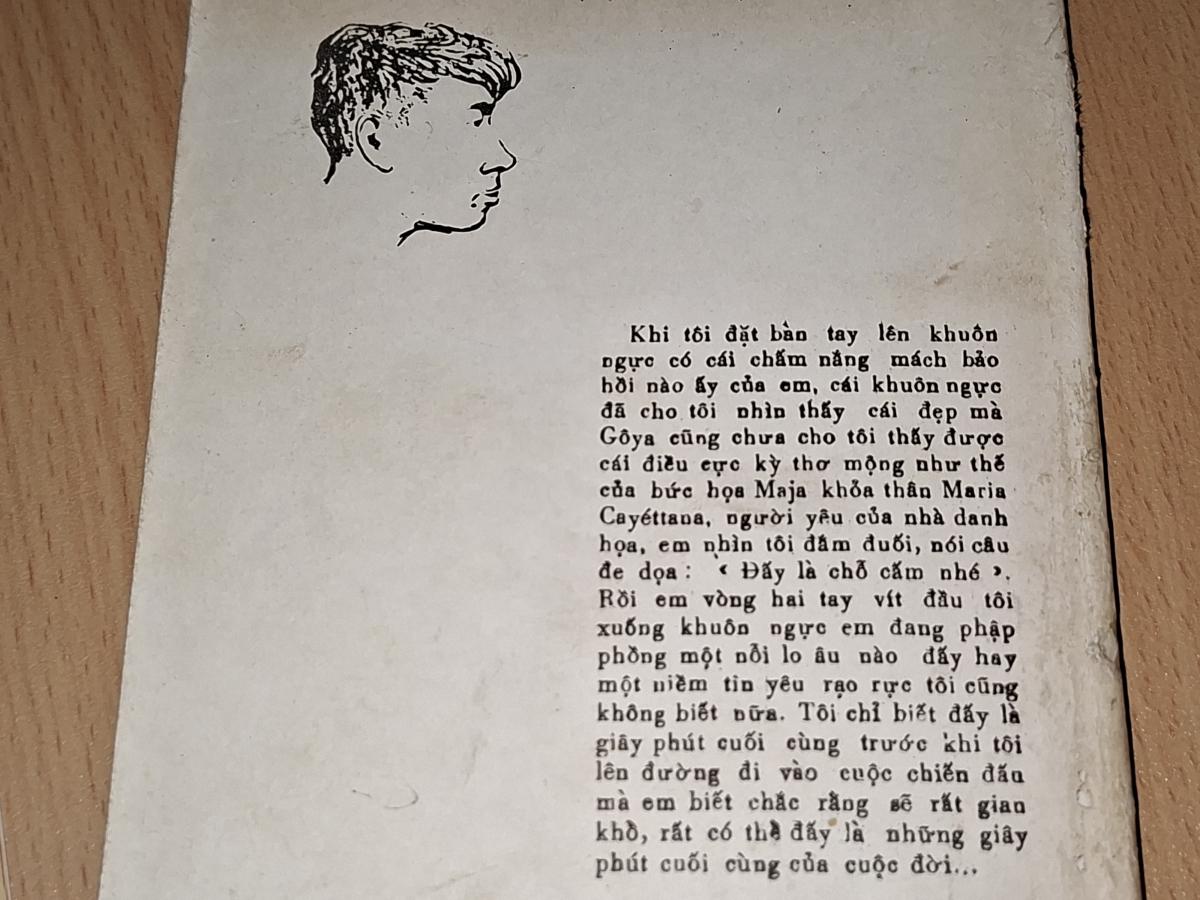 Khi tôi đặt bàn tay lên khuôn
ngực có cái chấm nắng mách bảo
hồi nào ấy của em, cái khuôn ngực
đã cho tôi nhìn thấy cái đẹp mà
Gôya cũng chưa cho tôi thấy được
cái điều cực kỳ thơ mộng như thế
của bức họa Maja khỏa thân Maria
Cayéttana, người yêu của nhà danh
họa, em nhìn tôi đắm đuối, nói câu
đe dọa : ‹ Đấy là chỗ cấm nhé ›.
Rồi em vòng hai tay vít đầu tôi
xuống khuôn ngực em đang phập
phồng một nỗi lo âu nào đấy hay
một niềm tin yêu rạo rực tôi cũng
không biết nữa. Tôi chỉ biết đấy là
giây phút cuối cùng trước khi tôi
lên đường đi vào cuộc chiến đấu
mà em biết chắc rằng sẽ rất gian
khổ, rất có thể đấy là những giây
phút cuối cùng của cuộc đời...